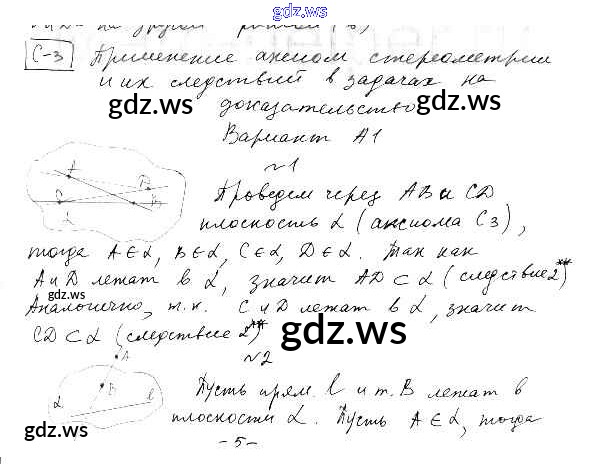 gdz.ws
на другой
С-3 Применение аксиом стереометрии
и их следствий в задачах на
gdz.ws gdz.ws
доказательство
Вариант А1
№1
Проведем через АВ и CD
плоскость α (аксиома С3),
тогда А∈α, В∈α, С∈α, D∈α. Так как
А и D лежат в α, значит AD⊂α (следствие 2**)
gdz.ws
Аналогично, т.к. С и D лежат в α, значит
CD⊂α (следствие 2**)
gdz.ws
№2
A
B
α l
Пусть прям. l и т. В лежат в
плоскости α. Пусть А∈α, тогда
gdz.ws
-5-
gdz.ws